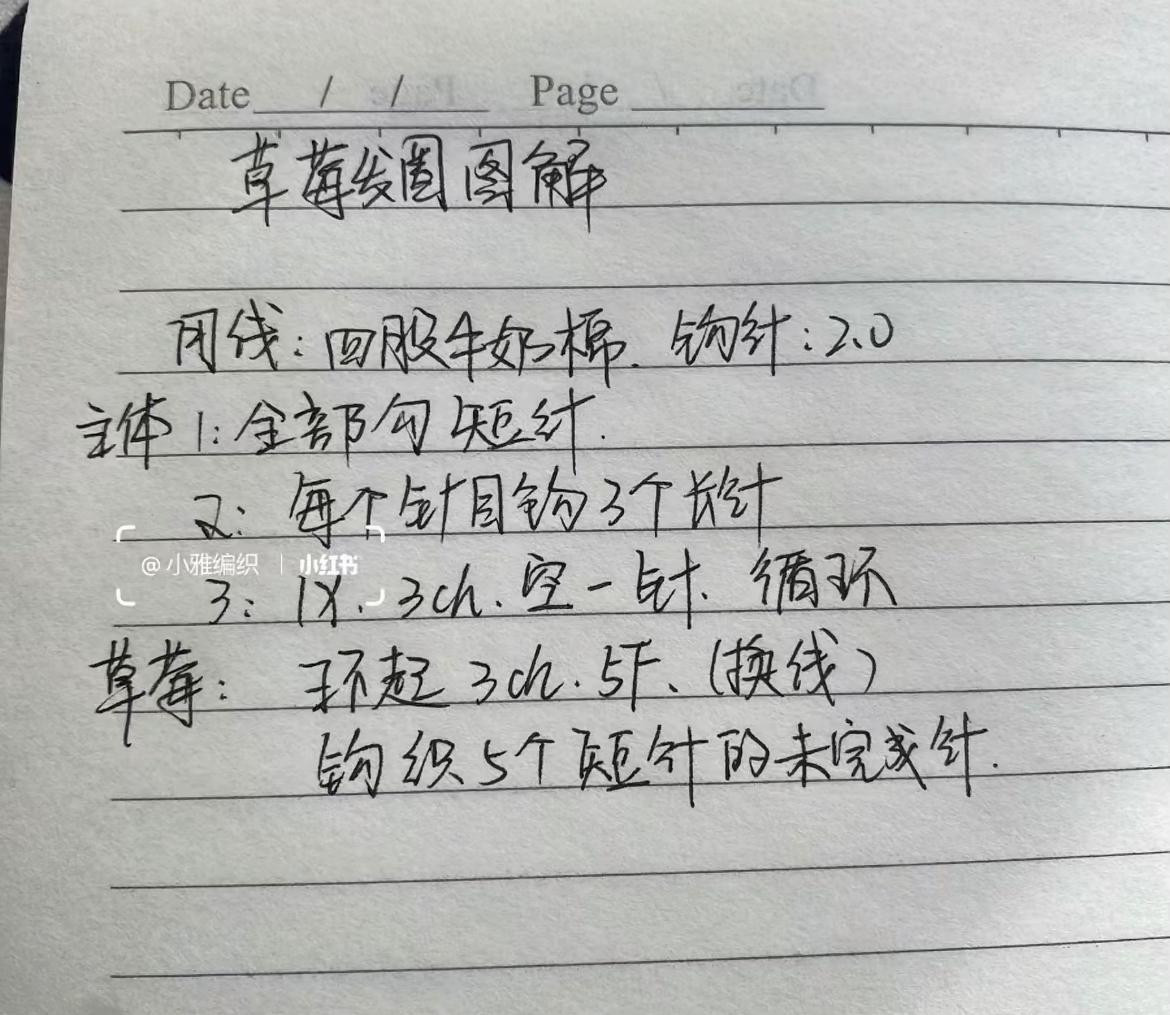 Date / / Page
草莓发圈图解
用线：四股牛奶棉. 钩针：2.0
主体 1：全部勾短针.
2： 每个针目钩3个长针
@小雅编织 | 小红书
3： 1X. 3ch. 空一针. 循环
草莓： 环起 3ch. 5F、(换线)
钩织5个短针的未完成针.